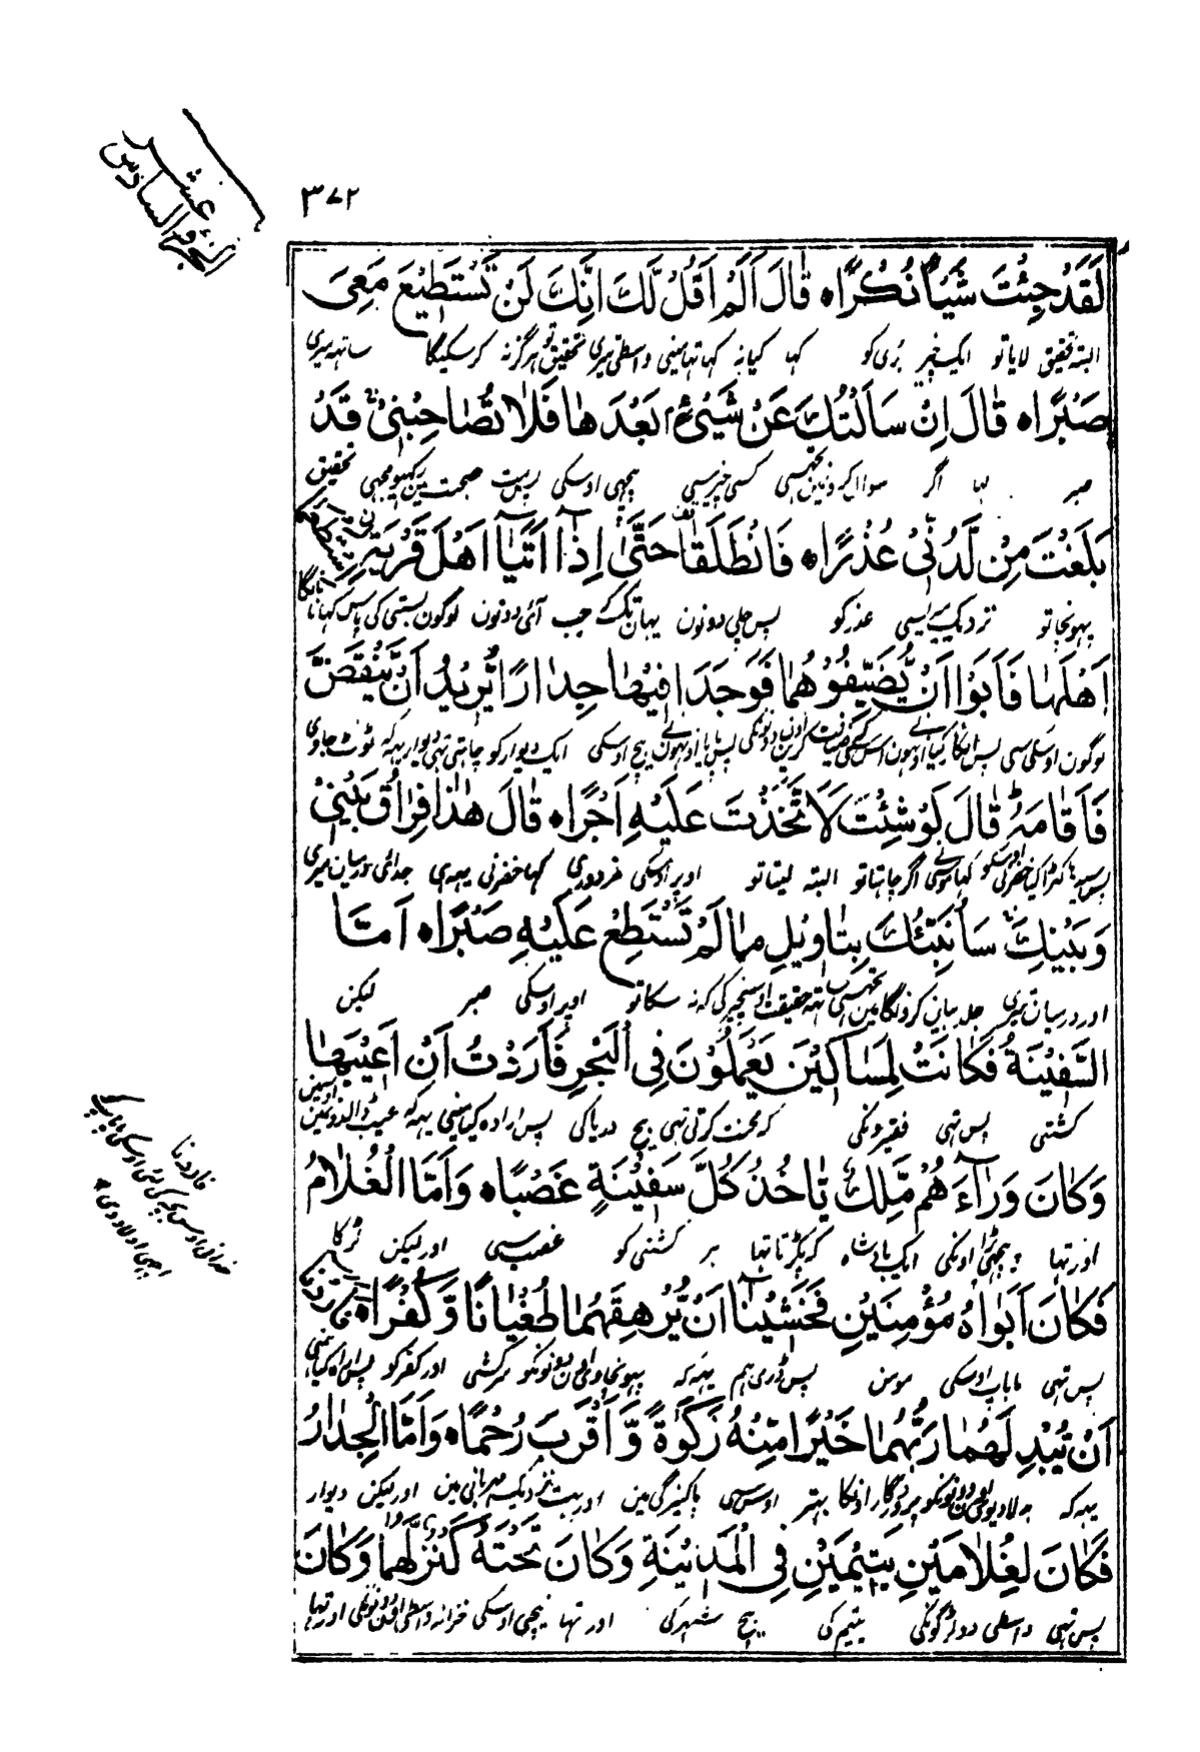 الجزء السادس
عشر
٣٧٢
لَقَدْ جِئْتَ شَيْـًٔا نُكْرًا ه قَالَ اَلَمْ اَقُلْ لَّكَ اِنَّكَ لَنْ تَسْتَطِيْعَ مَعِىَ
البتہ تحقیق لایا تو ایک چیز بُری کو کہا کیا نہ کہا تھا مینی واسطی تیری تحقیق تو ہرگز نہ کر سکیگا ساتھہ میری
صَبْرًا ه قَالَ اِنْ سَاَلْتُكَ عَنْ شَيْئٍ بَعْدَهَا فَلَا تُصَاحِبْنِيْ قَدْ
صبر کہا اگر سوال کرون مین تجھسی کسی چیز سی پیچھی اوسکی پس مت صحبت مین رکھیو مجھی تحقیق
بَلَغْتَ مِنْ لَّدُنِّيْ عُذْرًا ه فَانْطَلَقَا حَتّٰى اِذَا اَتَيَا اَهْلَ قَرْيَةِ نِ اسْتَطْعَمَا
پہونچا تو نزدیک میری سی عذر کو پس چلی دونون یہان تک کہ جب آئی دونون لوگون بستی کی پاس کھانا مانگا
اَهْلَهَا فَاَبَوْا اَنْ يُّضَيِّفُوْهُمَا فَوَجَدَا فِيْهَا جِدَارًا يُّرِيْدُ اَنْ يَّنْقَضَّ
لوگون اوسکی سی پس انکار کیا اونہون نے اس سے کہ ضیافت کرین اون دونونکی پس پایا اونہون نے بیچ اوسکی ایک دیوار کو چاہتی تہی دیوار یہہ کہ ٹوٹ جاوی
فَاَقَامَهٗ قَالَ لَوْ شِئْتَ لَا تَّخَذْتَ عَلَيْهِ اَجْرًا ه قَالَ هٰذَا فِرَاقُ بَيْنِيْ
پس سیدہا کھڑا کیا خضر نی اوسکو کہا موسی نے اگر چاہتا تو البتہ لیتا تو اوپر اوسکی مزدوری کہا خضر نی یہہ ہی جدائی درمیان میری
وَبَيْنِكَ سَاُنَبِّئُكَ بِتَاْوِيْلِ مَا لَمْ تَسْتَطِعْ عَلَيْهِ صَبْرًا ه اَمَّا
اور درمیان تیری جلد بیان کرونگا مین تجھسی ساتھہ حقیقت اوس چیز کی کہ نہ سکا تو اوپر اوسکی صبر لیکن
السَّفِيْنَةُ فَكَانَتْ لِمَسَاكِيْنَ يَعْمَلُوْنَ فِي الْبَحْرِ فَاَرَدْتُ اَنْ اَعِيْبَهَا
کشتی پس تہی فقیرونکی کہ محنت کرتی تہی بیچ دریا کی پس ارادہ کیا مینی یہہ کہ عیب ڈالدون اوسمین
وَكَانَ وَرَآءَهُمْ مَّلِكٌ يَّاْخُذُ كُلَّ سَفِيْنَةٍ غَصْبًا ه وَاَمَّا الْغُلَامُ
اور تہا پیچھی اونکی ایک بادشاہ کہ پکڑتا تہا ہر کشتی کو غصب سی اور لیکن لڑکا
فَكَانَ اَبَوَاهُ مُؤْمِنَيْنِ فَخَشِيْنَا اَنْ يُّرْهِقَهُمَا طُغْيَانًا وَّكُفْرًا ه فَاَرَدْنَا
پس تہی ما باپ اوسکی مومن پس ڈری ہم یہہ کہ پہونچاوی اون دونونکو سرکشی اور کفر کو پس ارادہ کیا ہمنی
اَنْ يُّبْدِ لَهُمَا رَبُّهُمَا خَيْرًا مِّنْهُ زَكٰوةً وَّاَقْرَبَ رُحْمًا ه وَاَمَّا الْجِدَارُ
یہہ کہ بدلا دیوی اون دونونکو پروردگار اونکا بہتر اوس سی پاکیزگی مین اور بہت نزدیک مہربانی مین اور لیکن دیوار
فَكَانَ لِغُلَامَيْنِ يَتِيْمَيْنِ فِي الْمَدِيْنَةِ وَكَانَ تَحْتَهٗ كَنْزٌ لَّهُمَا وَكَانَ
پس تہی واسطی دو لڑکونکی یتیم کی بیچ شہر کی اور تہا نیچی اوسکی خزانہ واسطی اون دونونکی اور تہا
فاردنا
خدا نی اوس بچہ کی
اچہی اولاد دی